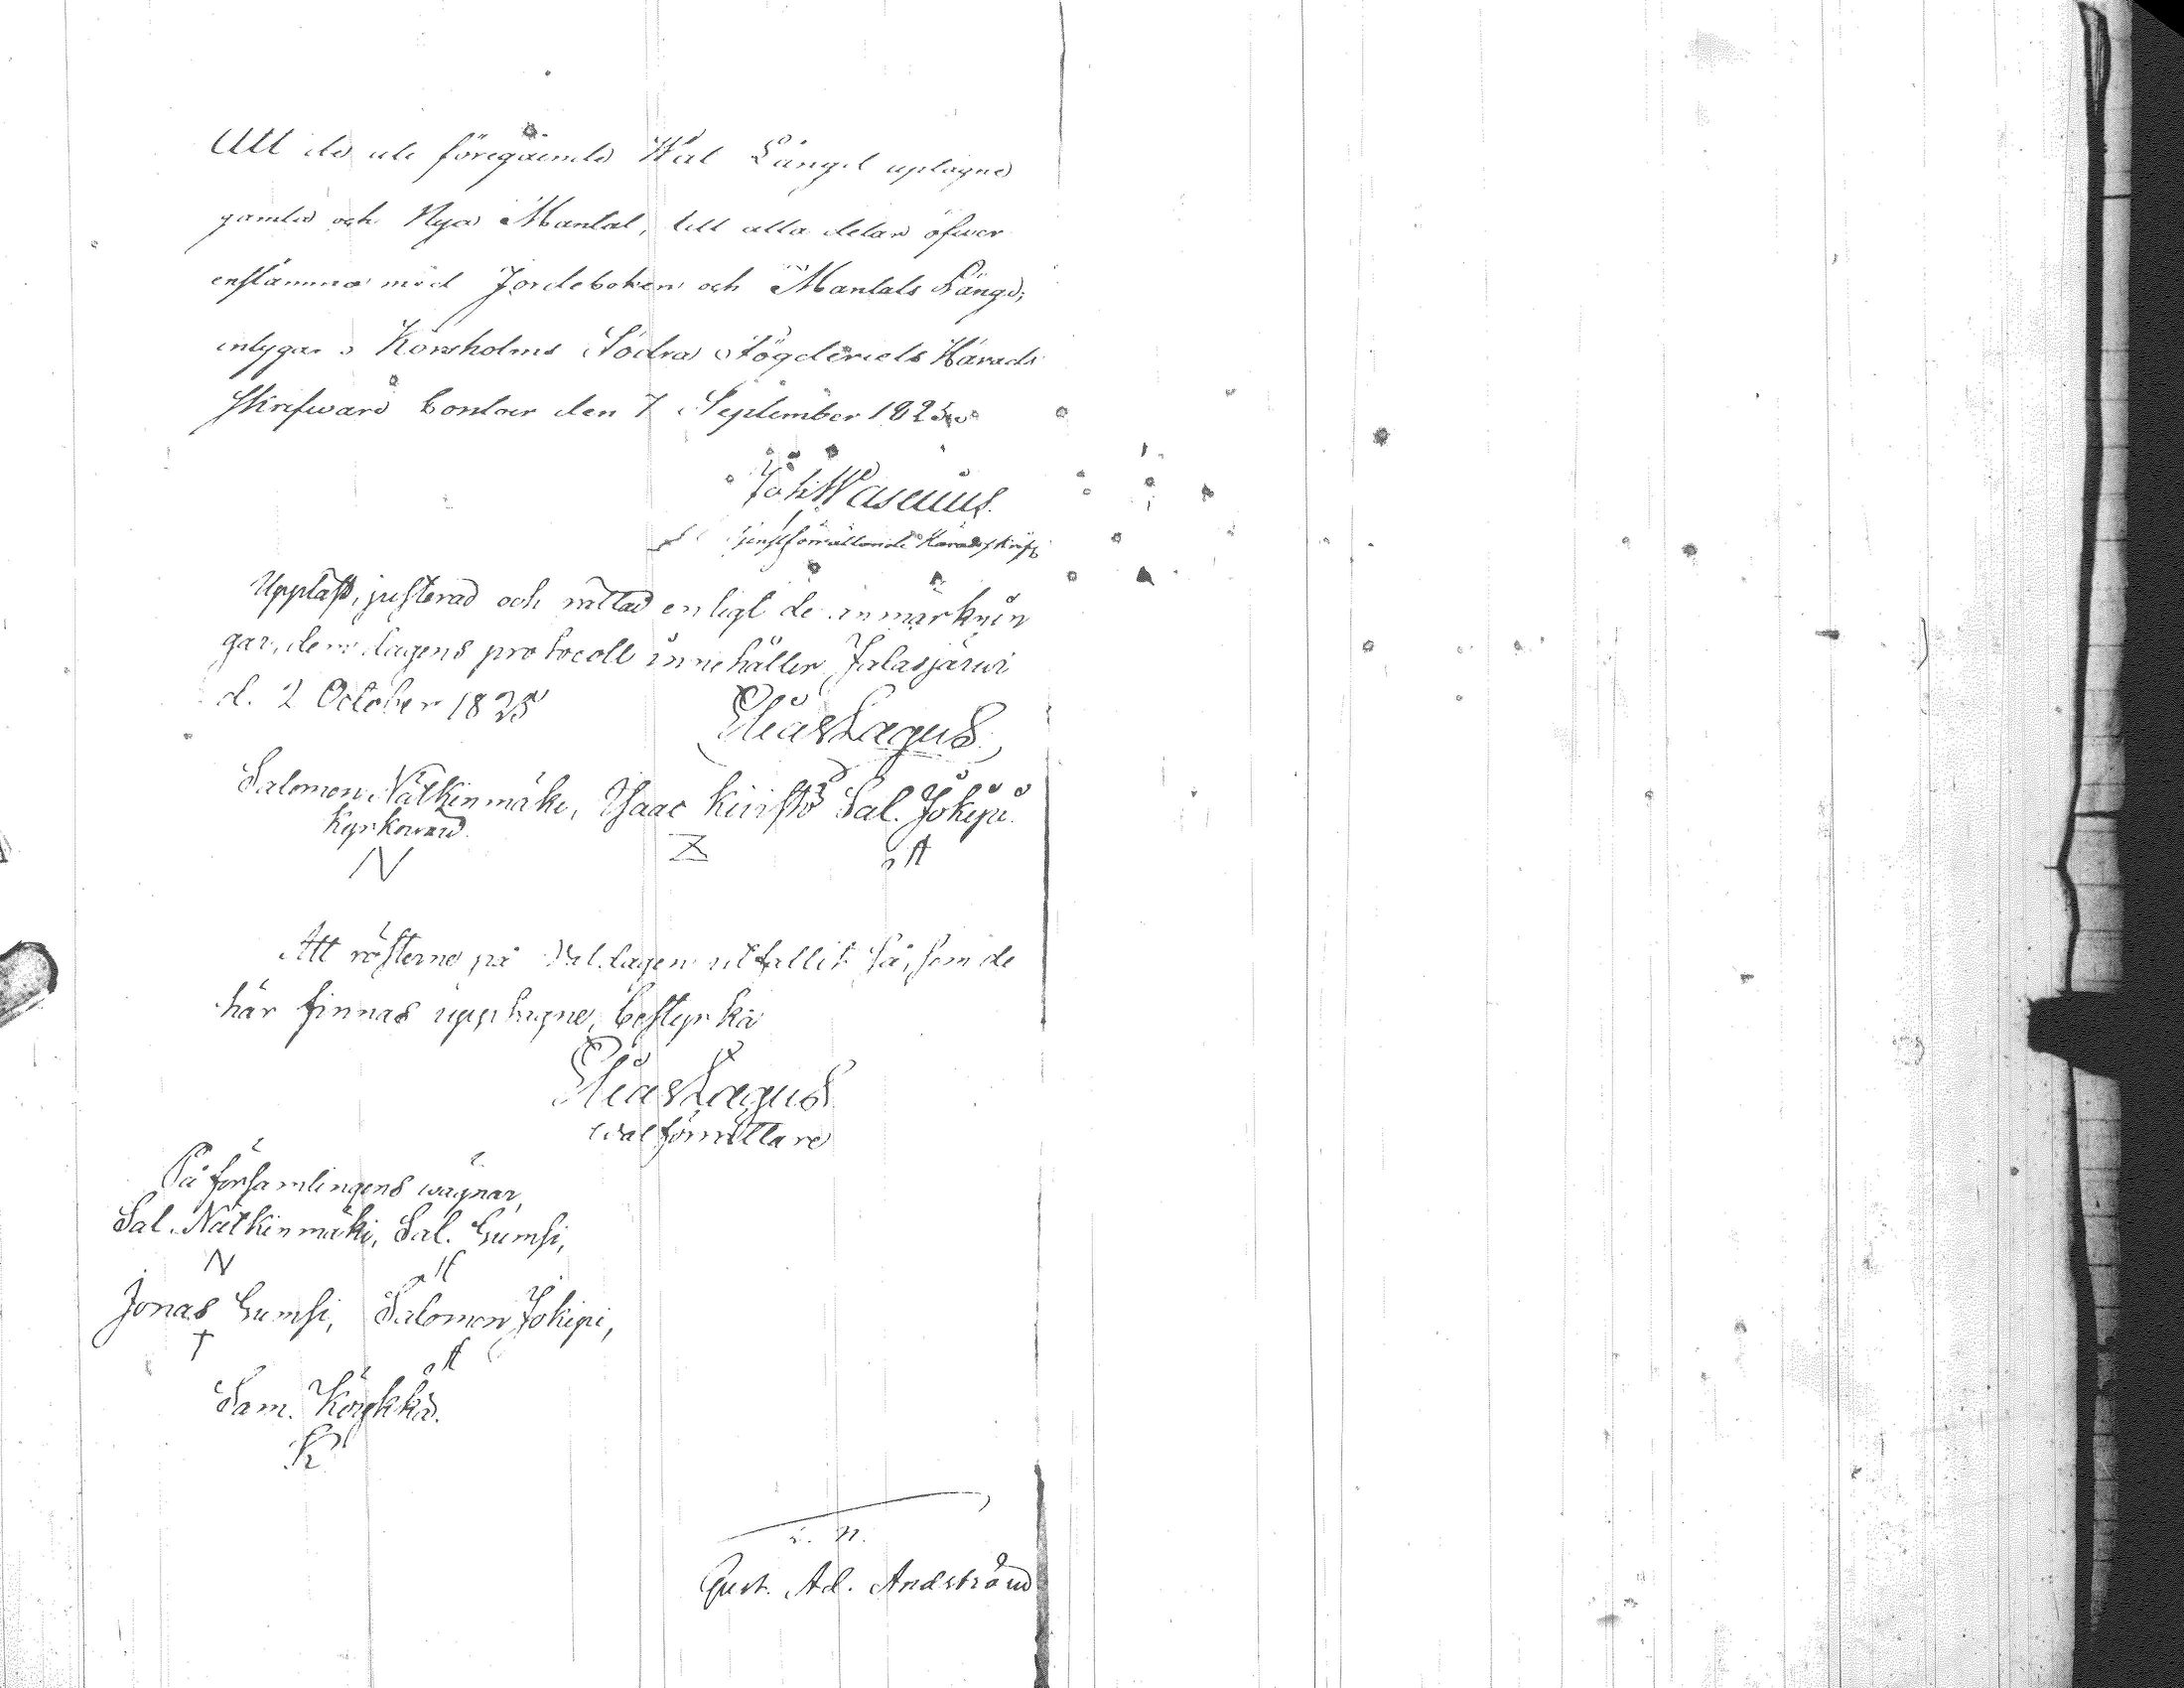 Att de uti föregående Wal Längd uptagne
gamla och Nya Mantal, till alla delar öfwer
ensstämma med Jordeboken och Mantals Längd;
intygar; Korsholms Södra Fögderiets Härads
Skrifware Contoir den 7 September 1825.
Joh Wasenius.
tjenstförrättande Häradsskrifv
Uppläst, justerad och rättad enligt de anmärknin
gar, dem dagens protocoll innehåller, Jalasjärwi
d. 2 October 1825
Elias Lagus
Salomon Nätkinmäki, Isaac Kiwistö Sal. Jokipi.
Kyrkoward.
N
Att rösterne på Valdagen utfallit så, som de
här finnas upptagne, bestyrka
Elias Lagus
Valförrättare
På församlingens wägnar,
Sal. Nätkinmäki, Sal. Gumsi,
N
Jonas Gumsi, Salomon Jokipi,
Sam. Köykkä.
K
i. n.
Gust. Ad. Andström